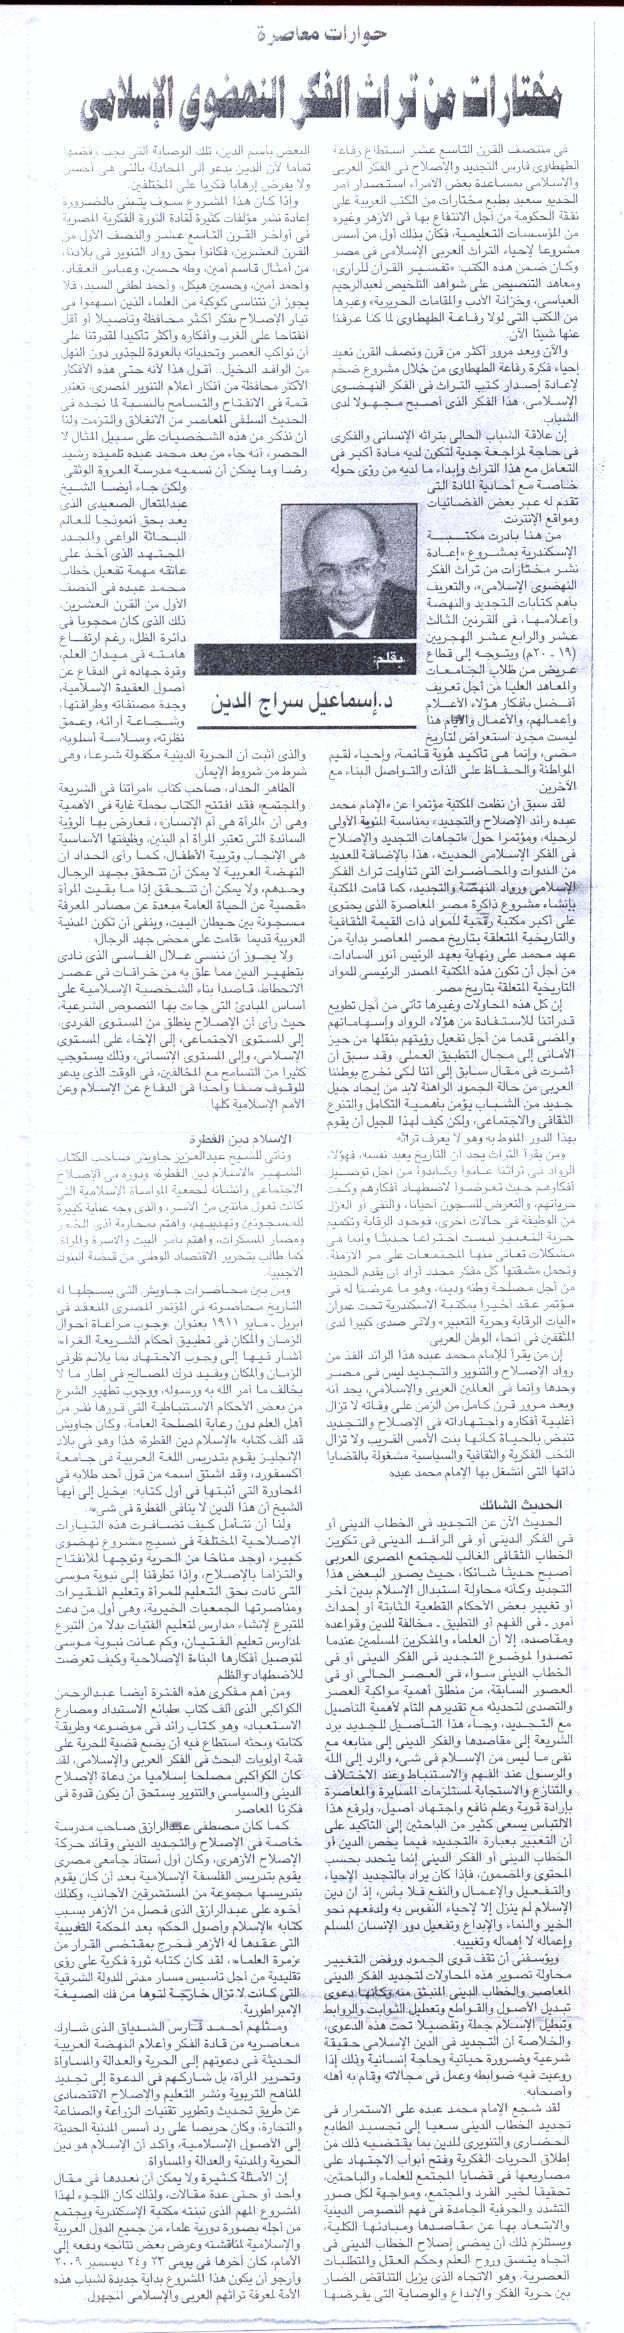 حوارات معاصرة
مختارات من تراث الفكر النهضوى الإسلامى
فى منتصف القرن التاسع عشر استطاع رفاعة
الطهطاوى فارس التجديد والإصلاح فى الفكر العربى
والإسلامى بمساعدة بعض الأمراء استصدار أمر
الخديو سعيد بطبع مختارات من الكتب العربية على
نفقة الحكومة من أجل الانتفاع بها فى الأزهر وغيره
من المؤسسات التعليمية، فكان بذلك أول من أسس
مشروعا لإحياء التراث العربى الإسلامى فى مصر
وكان ضمن هذه الكتب: «تفسير القرآن للرازى،
ومعاهد التنصيص على شواهد التلخيص لعبدالرحيم
العباسى، وخزانة الأدب والمقامات الحريرية» وغيرها
من الكتب التى لولا رفاعة الطهطاوى لما كنا عرفنا
عنها شيئا الآن.
والآن وبعد مرور أكثر من قرن ونصف القرن نعيد
إحياء فكرة رفاعة الطهطاوى من خلال مشروع ضخم
لإعادة إصدار كتب التراث فى الفكر النهضوى
الإسلامى، هذا الفكر الذى أصبح مجهولا لدى
الشباب.
إن علاقة الشباب الحالى بتراثه الإنسانى والفكرى
فى حاجة لمراجعة جدية لتكون لديه مادة أكبر فى
التعامل مع هذا التراث وإبداء ما لديه من رؤى حوله
خاصة مع أحادية المادة التى
تقدم له عبر بعض الفضائيات
ومواقع الإنترنت.
من هنا بادرت مكتبة
الإسكندرية بمشروع «إعادة
نشر مختارات من تراث الفكر
النهضوى الإسلامى»، والتعريف
بأهم كتابات التجديد والنهضة
وأعلامها، فى القرنين الثالث
عشر والرابع عشر الهجريين
(١٩ - ٢٠م) ويتوجه إلى قطاع
عريض من طلاب الجامعات
والمعاهد العليا من أجل تعريف
أفضل بأفكار هؤلاء الأعلام
وأعمالهم، والأعمال هنا
ليست مجرد استعراض لتاريخ
مضى، وإنما هى تأكيد هُوية قائمة، وإحياء لقيم
المواطنة والحفاظ على الذات والتواصل البناء مع
الآخرين.
لقد سبق أن نظمت المكتبة مؤتمرا عن «الإمام محمد
عبده رائد الإصلاح والتجديد» بمناسبة المئوية الأولى
لرحيله، ومؤتمرا حول «اتجاهات التجديد والإصلاح
فى الفكر الإسلامى الحديث، هذا بالإضافة للعديد
من الندوات والمحاضرات التى تناولت تراث الفكر
الإسلامى ورواد النهضة والتجديد، كما قامت المكتبة
بإنشاء مشروع ذاكرة مصر المعاصرة الذى يحتوى
على أكبر مكتبة رقمية للمواد ذات القيمة الثقافية
والتاريخية المتعلقة بتاريخ مصر المعاصر بداية من
عهد محمد على ونهاية بعهد الرئيس أنور السادات،
من أجل أن تكون هذه المكتبة المصدر الرئيسى للمواد
التاريخية المتعلقة بتاريخ مصر.
إن كل هذه المحاولات وغيرها تأتى من أجل تطويع
قدراتنا للاستفادة من هؤلاء الرواد وإسهاماتهم
والمضى قدما من أجل تفعيل رؤيتهم بنقلها من حيز
الأمانى إلى مجال التطبيق العملى. وقد سبق أن
أشرت فى مقال سابق إلى أننا لكى نخرج بوطننا
العربى من حالة الجمود الراهنة لابد من إيجاد جيل
جديد من الشباب يؤمن بأهمية التكامل والتنوع
الثقافى والاجتماعى، ولكن كيف لهذا الجيل أن يقوم
بهذا الدور المنوط به وهو لا يعرف تراثه
ومن يقرأ التراث يجد أن التاريخ يعيد نفسه، فهؤلاء
الرواد فى تراثنا عانوا وكابدوا من أجل توصيل
أفكارهم حيث تعرضوا لاضطهاد أفكارهم وكبت
حرياتهم، والتعرض للسجون أحيانا، والنفى أو العزل
من الوظيفة فى حالات أخرى، فوجود الرقابة وتكميم
حرية التعبير ليست اختراعا حديثا وإنما هى
مشكلات تعانى منها المجتمعات على مر الأزمنة،
وتحمل مشقتها كل مفكر مجدد أراد أن يقدم الجديد
من أجل مصلحة وطنه ودينه، وهو ما عرضنا له فى
مؤتمر عقد أخيرا بمكتبة الإسكندرية تحت عنوان
«آليات الرقابة وحرية التعبير» ولاقى صدى كبيرا لدى
المثقفين فى أنحاء الوطن العربى.
إن من يقرأ للإمام محمد عبده هذا الرائد الفذ من
رواد الإصلاح والتنوير والتجديد ليس فى مصر
وحدها وإنما فى العالمين العربى والإسلامى، يجد أنه
وبعد مرور قرن كامل من الزمن على وفاته لا تزال
أغلبية أفكاره واجتهاداته فى الإصلاح والتجديد
تنبض بالحياة كأنها بنت الأمس القريب ولا تزال
النخب الفكرية والثقافية والسياسية مشغولة بالقضايا
ذاتها التى انشغل بها الإمام محمد عبده
الحديث الشائك
الحديث الآن عن التجديد فى الخطاب الدينى أو
فى الفكر الدينى أو فى الرافد الدينى فى تكوين
الخطاب الثقافى الغالب للمجتمع المصرى العربى
أصبح حديثا شائكا، حيث يصور البعض هذا
التجديد وكأنه محاولة استبدال الإسلام بدين آخر
أو تغيير بعض الأحكام القطعية الثابتة أو إحداث
أمور - فى الفهم أو التطبيق - مخالفة للدين وقواعده
ومقاصده، إلا أن العلماء والمفكرين المسلمين عندما
تصدوا لموضوع التجديد فى الفكر الدينى أو فى
الخطاب الدينى سواء فى العصر الحالى أو فى
العصور السابقة، من منطلق أهمية مواكبة العصر
والتصدى لتحديثه مع تقديرهم التام لأهمية التأصيل
مع التجديد، وجاء هذا التأصيل للجديد برد
الشريعة إلى مقاصدها والفكر الدينى إلى منابعه مع
نفى ما ليس من الإسلام فى شىء والرد إلى الله
والرسول عند الفهم والاستنباط وعند الاختلاف
والتنازع والاستجابة لمستلزمات المسايرة والمعاصرة
بإرادة قوية وعلم نافع واجتهاد أصيل، ولرفع هذا
الالتباس يسعى كثير من الباحثين إلى التأكيد على
أن التعبير بعبارة «التجديد» فيما يخص الدين أو
الخطاب الدينى أو الفكر الدينى إنما يتحدد بحسب
المحتوى والمضمون، فإذا كان يراد بالتجديد الإحياء
والتفعيل والإعمال والنفع فلا بأس، إذ إن دين
الإسلام لم ينزل إلا لإحياء النفوس به ولدفعهم نحو
الخير والنماء والإبداع وتفعيل دور الإنسان المسلم
وإعماله لا إهماله وتغييبه.
ويؤسفنى أن تقف قوى الجمود ورفض التغيير
محاولة تصوير هذه المحاولات لتجديد الفكر الدينى
المعاصر والخطاب الدينى المنبثق منه وكأنها دعوى
تبديل الأصول والقواطع وتعطيل الثوابت والروابط
وتبطيل الإسلام جملة وتفصيلا تحت هذه الدعوى،
والخلاصة أن التجديد فى الدين الإسلامى حقيقة
شرعية وضرورة حياتية وحاجة إنسانية وذلك إذا
روعيت فيه ضوابطه وعمل فى مجالاته وقام به أهله
وأصحابه.
لقد شجع الإمام محمد عبده على الاستمرار فى
تجديد الخطاب الدينى سعيا إلى تجسيد الطابع
الحضارى والتنويرى للدين بما يقتضيه ذلك من
إطلاق الحريات الفكرية وفتح أبواب الاجتهاد على
مصاريعها فى قضايا المجتمع للعلماء والباحثين،
تحقيقا لخير الفرد والمجتمع، ومواجهة لكل صور
التشدد والحرفية الجامدة فى فهم النصوص الدينية
والابتعاد بها عن مقاصدها ومبادئها الكلية،
ويستلزم ذلك أن يمضى إصلاح الخطاب الدينى فى
اتجاه يتسق وروح العلم وحكم العقل والمتطلبات
العصرية، وهو الاتجاه الذى يزيل التناقض الضار
بين حرية الفكر والإبداع والوصاية التى يفرضها
البعض باسم الدين، تلك الوصاية التى يجب رفضها
تماما لأن الدين يدعو إلى المجادلة بالتى هى أحسن
ولا يفرض إرهابا فكريا على المختلفين.
وإذا كان هذا المشروع سوف يتبنى بالضرورة
إعادة نشر مؤلفات كثيرة لقادة الثورة الفكرية المصرية
فى أواخر القرن التاسع عشر والنصف الأول من
القرن العشرين، فكانوا بحق رواد التنوير فى بلادنا،
من أمثال قاسم أمين، وطه حسين، وعباس العقاد،
وأحمد أمين، وحسين هيكل، وأحمد لطفى السيد، فلا
يجوز أن نتناسى كوكبة من العلماء الذين أسهموا فى
تيار الإصلاح بفكر أكثر محافظة وتأصيلا أو أقل
انفتاحا على الغرب وأفكاره وأكثر تأكيدا لقدرتنا على
أن نواكب العصر وتحدياته بالعودة للجذور دون النهل
من الوافد الدخيل. أقول هذا لأنه حتى هذه الأفكار
الأكثر محافظة من أفكار أعلام التنوير المصرى، تعتبر
قمة فى الانفتاح والتسامح بالنسبة لما نجده فى
الحديث السلفى المعاصر من الانغلاق والتزمت ولنا
أن نذكر من هذه الشخصيات على سبيل المثال لا
الحصر، أنه جاء من بعد محمد عبده تلميذه رشيد
رضا وما يمكن أن نسميه مدرسة العروة الوثقى
ولكن جاء أيضا الشيخ
عبدالمتعال الصعيدى الذى
يعد بحق أنموذجا للعالم
البحاثة الواعى والمجدد
المجتهد الذى أخذ على
عاتقه مهمة تفعيل خطاب
محمد عبده فى النصف
الأول من القرن العشرين،
ذلك الذى كان محجوبا فى
دائرة الظل، رغم ارتفاع
هامته فى ميدان العلم،
وقوة جهاده فى الدفاع عن
أصول العقيدة الإسلامية،
وجدة مصنفاته وطرافتها،
وشجاعة آرائه، وعمق
نظرته، وسلاسة أسلوبه،
والذى أثبت أن الحرية الدينية مكفولة شرعا، وهى
شرط من شروط الإيمان.
الطاهر الحداد، صاحب كتاب «امرأتنا فى الشريعة
والمجتمع» فقد افتتح الكتاب بجملة غاية فى الأهمية
وهى أن «المرأة هى أم الإنسان»، فعارض بها الرؤية
السائدة التى تعتبر المرأة أم البنين، وظيفتها الأساسية
هى الإنجاب وتربية الأطفال، كما رأى الحداد أن
النهضة العربية لا يمكن أن تتحقق بجهد الرجال
وحدهم، ولا يمكن أن تتحقق إذا ما بقيت المرأة
مقصية عن الحياة العامة مبعدة عن مصادر المعرفة
مسجونة بين حيطان البيت، وينفى أن تكون المدنية
العربية قديما «قامت على محض جهد الرجال».
ولا يجوز أن ننسى علال الفاسى الذى نادى
بتطهير الدين مما علق به من خرافات فى عصر
الانحطاط، قاصدا بناء الشخصية الإسلامية على
أساس المبادئ التى جاءت بها النصوص الشرعية،
حيث رأى أن الإصلاح ينطلق من المستوى الفردى،
إلى المستوى الاجتماعى، إلى الإخاء على المستوى
الإسلامى، وإلى المستوى الإنسانى، وذلك يستوجب
كثيرا من التسامح مع المخالفين، فى الوقت الذى يدعو
للوقوف صفا واحدا فى الدفاع عن الإسلام وعن
الأمم الإسلامية كلها.
الإسلام دين الفطرة
ونأتى للشيخ عبدالعزيز جاويش صاحب الكتاب
الشهير «الإسلام دين الفطرة» ودوره فى الإصلاح
الاجتماعى وإنشائه لجمعية المواساة الإسلامية التى
كانت تعول مائتين من الأسر، والذى وجه عناية كبيرة
للمسجونين وتهذيبهم، واهتم بمحاربة أذى الخمر
ومضار المسكرات، واهتم بأمر البيت والأسرة والمرأة،
كما طالب بتحرير الاقتصاد الوطنى من قبضة البنوك
الأجنبية.
ومن بين محاضرات جاويش التى يسجلها له
التاريخ محاضرته فى المؤتمر المصرى المنعقد فى
أبريل - مايو ١٩١١ بعنوان «وجوب مراعاة أحوال
الزمان والمكان فى تطبيق أحكام الشريعة الغراء»
أشار فيها إلى وجوب الاجتهاد بما يلائم ظرفى
الزمان والمكان ويفيد درك المصالح فى إطار ما لا
يخالف ما أمر الله به ورسوله، ووجوب تطهير الشرع
من بعض الأحكام الاستنباطية التى قررها نفر من
أهل العلم دون رعاية المصلحة العامة، وكان جاويش
قد ألف كتابه «الإسلام دين الفطرة» هذا وهو فى بلاد
الإنجليز يقوم بتدريس اللغة العربية فى جامعة
أكسفورد، وقد اشتق اسمه من قول أحد طلابه فى
المحاورة التى أثبتها فى أول كتابه: «يخيل إلى أيها
الشيخ أن هذا الدين لا ينافى الفطرة فى شىء».
ولنا أن نتأمل كيف تضافرت هذه التيارات
الإصلاحية المختلفة فى نسيج مشروع نهضوى
كبير، أوجد مناخا من الحرية وتوجها للانفتاح
والتزاما بالإصلاح، وإذا تطرقنا إلى نبوية موسى
التى نادت بحق التعليم للمرأة وتعليم الفقيرات
ومناصرتها الجمعيات الخيرية، وهى أول من دعت
للتبرع لإنشاء مدارس لتعليم الفتيات بدلا من التبرع
لمدارس تعليم الفتيان، وكم عانت نبوية موسى
لتوصيل أفكارها البناءة الإصلاحية وكيف تعرضت
للاضطهاد والظلم.
ومن أهم مفكرى هذه الفترة أيضا عبدالرحمن
الكواكبى الذى ألف كتاب «طبائع الاستبداد ومصارع
الاستعباد» وهو كتاب رائد فى موضوعه وطريقة
كتابته وبحثه استطاع فيه أن يضع قضية الحرية على
قمة أولويات البحث فى الفكر العربى والإسلامى، لقد
كان الكواكبى مصلحا إسلاميا من دعاة الإصلاح
الدينى والسياسى والتنوير يستحق أن يكون قدوة فى
فكرنا المعاصر.
كما كان مصطفى عبدالرازق صاحب مدرسة
خاصة فى الإصلاح والتجديد الدينى وقائد حركة
الإصلاح الأزهرى، وكان أول أستاذ جامعى مصرى
يقوم بتدريس الفلسفة الإسلامية بعد أن كان يقوم
بتدريسها مجموعة من المستشرقين الأجانب، وكذلك
أخوه على عبدالرازق الذى فصل من الأزهر بسبب
كتابه «الإسلام وأصول الحكم» بعد المحكمة التأديبية
التى عقدها له الأزهر فخرج بمقتضى القرار من
«زمرة العلماء»، لقد كان كتابه ثورة فكرية على رؤى
تقليدية من أجل تأسيس مسار مدنى للدولة الشرقية
التى كانت لا تزال خارجة لتوها من فك الصيغة
الإمبراطورية.
ومثلهم أحمد فارس الشدياق الذى شارك
معاصريه من قادة الفكر وأعلام النهضة العربية
الحديثة فى دعوتهم إلى الحرية والعدالة والمساواة
وتحرير المرأة، بل شاركهم فى الدعوة إلى تجديد
المناهج التربوية ونشر التعليم والإصلاح الاقتصادى
عن طريق تحديث وتطوير تقنيات الزراعة والصناعة
والتجارة، وكان حريصا على رد أسس المدنية الحديثة
إلى الأصول الإسلامية، وأكد أن الإسلام هو دين
الحرية والمدنية والعدالة والمساواة.
إن الأمثلة كثيرة ولا يمكن أن نعددها فى مقال
واحد أو حتى عدة مقالات، ولذلك كان اللجوء لهذا
المشروع المهم الذى تبنته مكتبة الإسكندرية ويجتمع
من أجله بصورة دورية علماء من جميع الدول العربية
والإسلامية لمناقشته وعرض بعض نتائجه ودفعه إلى
الأمام، كان آخرها فى يومى ٢٣ و٢٤ ديسمبر ٢٠٠٩
وأرجو أن يكون هذا المشروع بداية جديدة لشباب هذه
الأمة لمعرفة تراثهم العربى والإسلامى المجهول.
بقلم:
د.إسماعيل سراج الدين